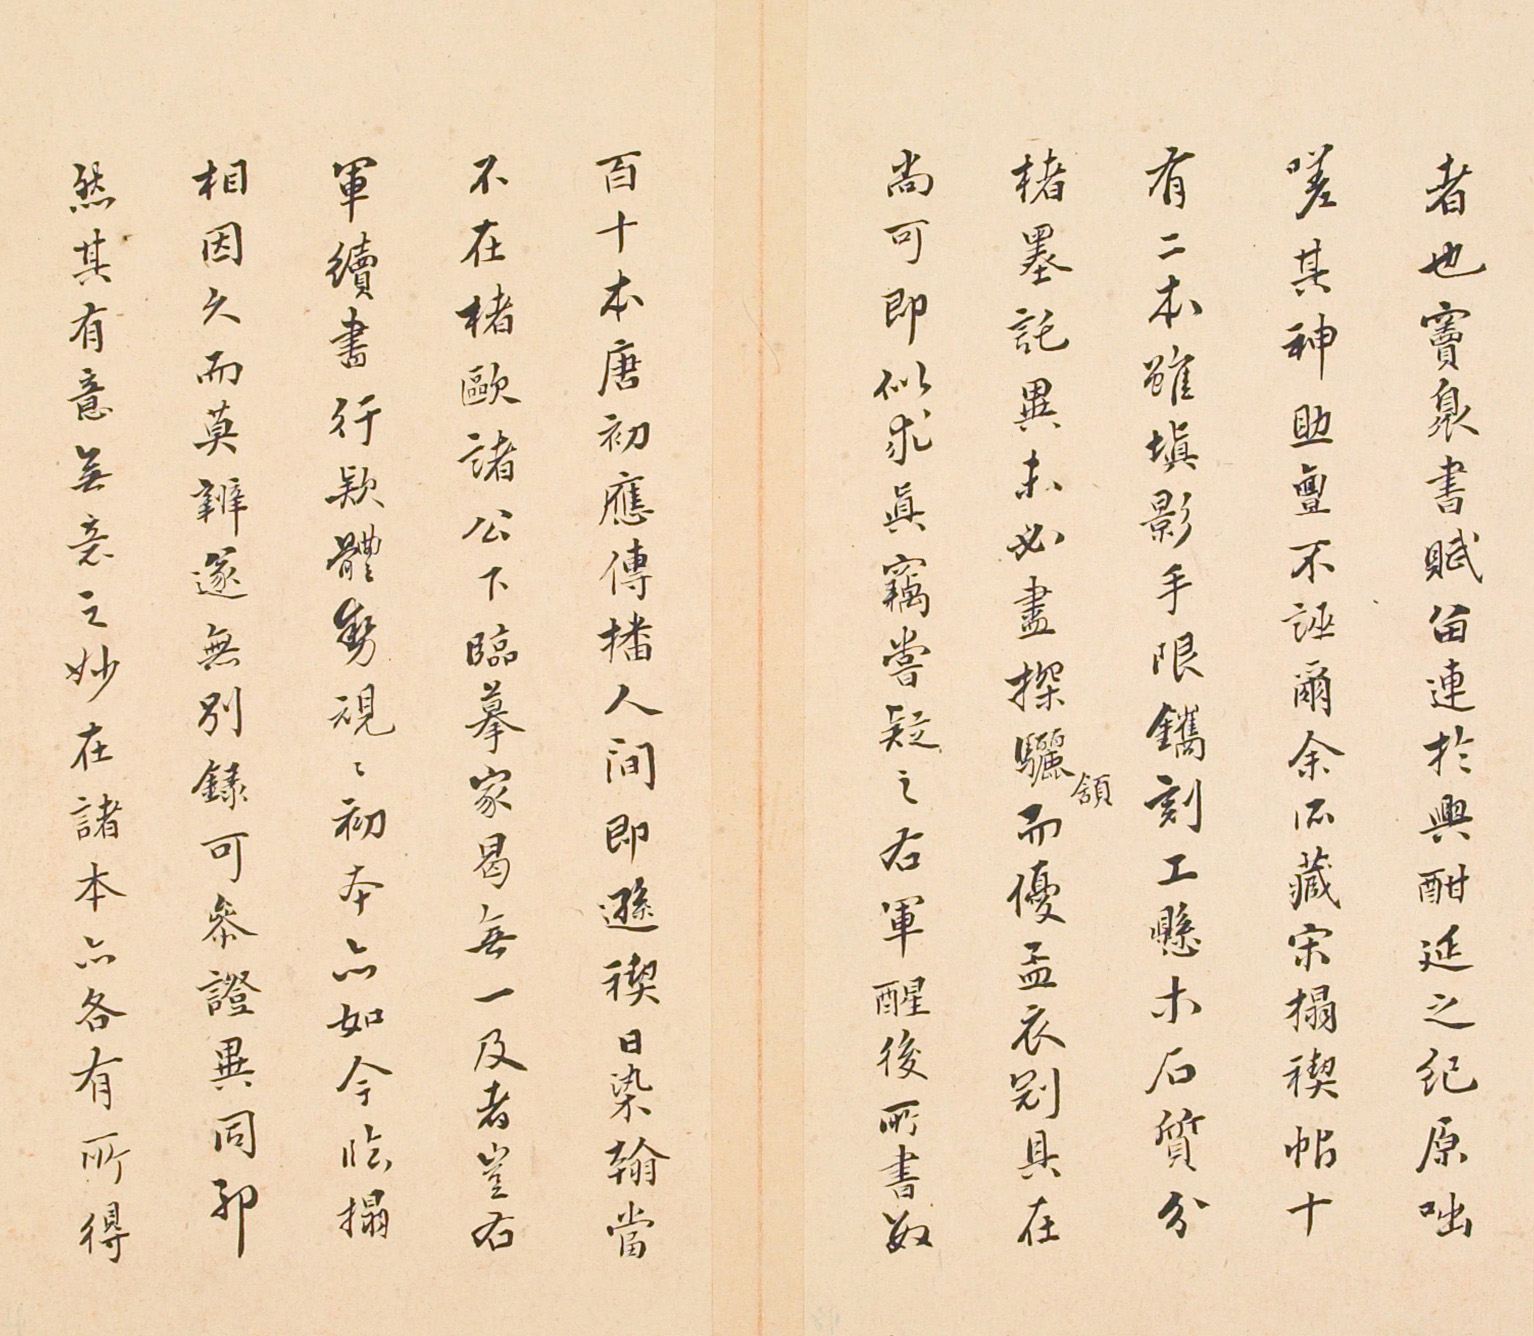 者也竇臮書賦留連於興酣延之紀原咄
嗟其神助亶不誣爾余所藏宋搨禊帖十
有二本雖填影手限鐫刻工懸木石質分
楮墨託異未必盡探驪頷而優孟衣冠具在
尚可即似求真竊嘗疑之右軍醒後所書數
百十本唐初應傳播人間即遜禊日染翰當
不在褚歐諸公下臨摹家曷無一及者豈右
軍續書行款體勢視視初本亦如今臨搨
相因久而莫辨遂無別錄可參證異同耶
然其有意無意之妙在諸本亦各有所得